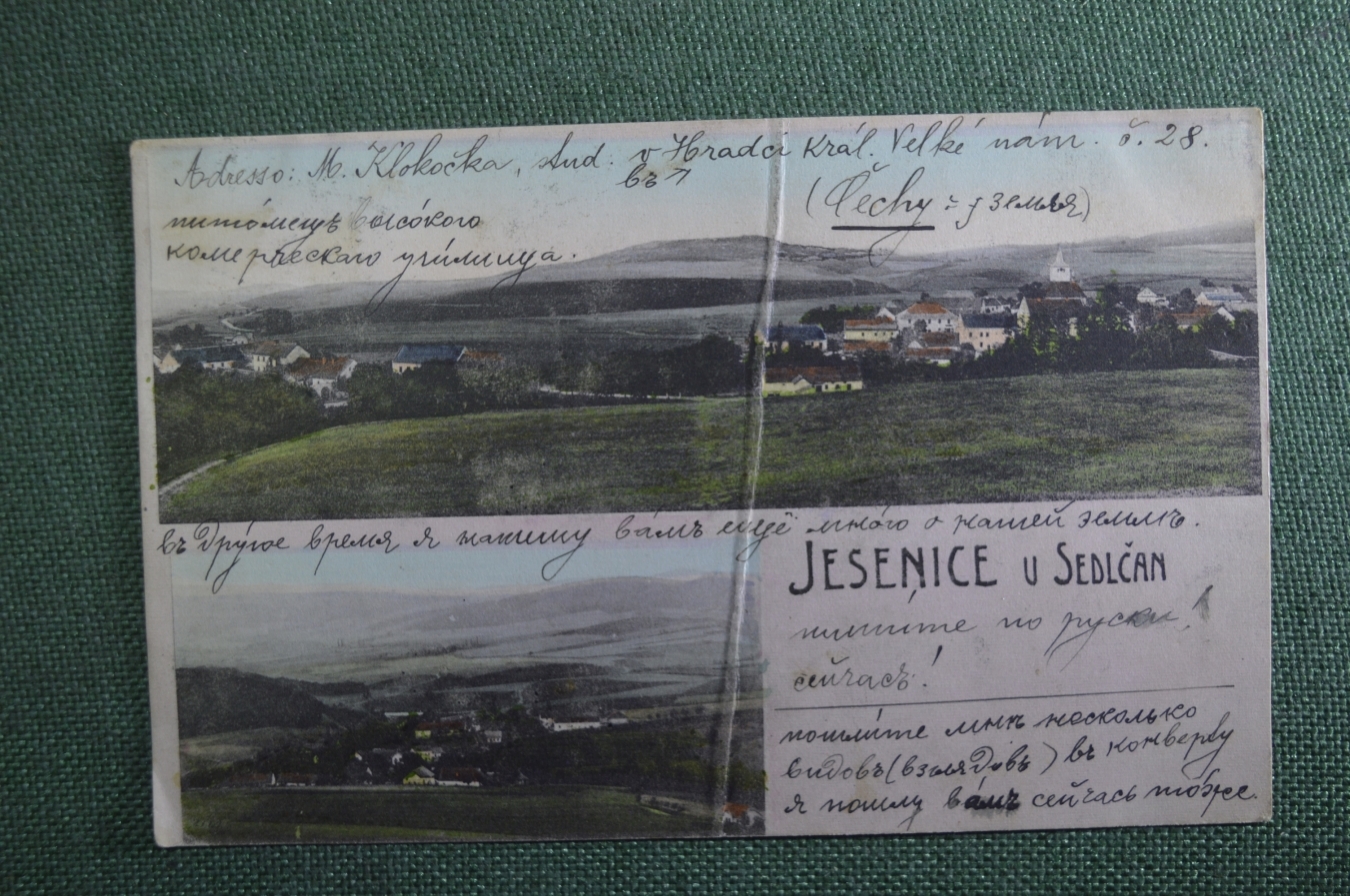 Adresso: M. Klokočka, stud. v Hradci Král. Velké nám. č. 28.
въ
(Čechy = земля)
питóмецъ высóкого
комерческаго учи́лища.
въ другóе время я напишу вáмъ ещё мнóго о нашей землѣ.
JESENICE U SEDLČAN
пиши́те по руски!
сейчасъ!
пошли́те мнѣ нѣсколько
видовъ (взглядовъ) въ конверту
я пошлю вáмъ сейчасъ тóже.